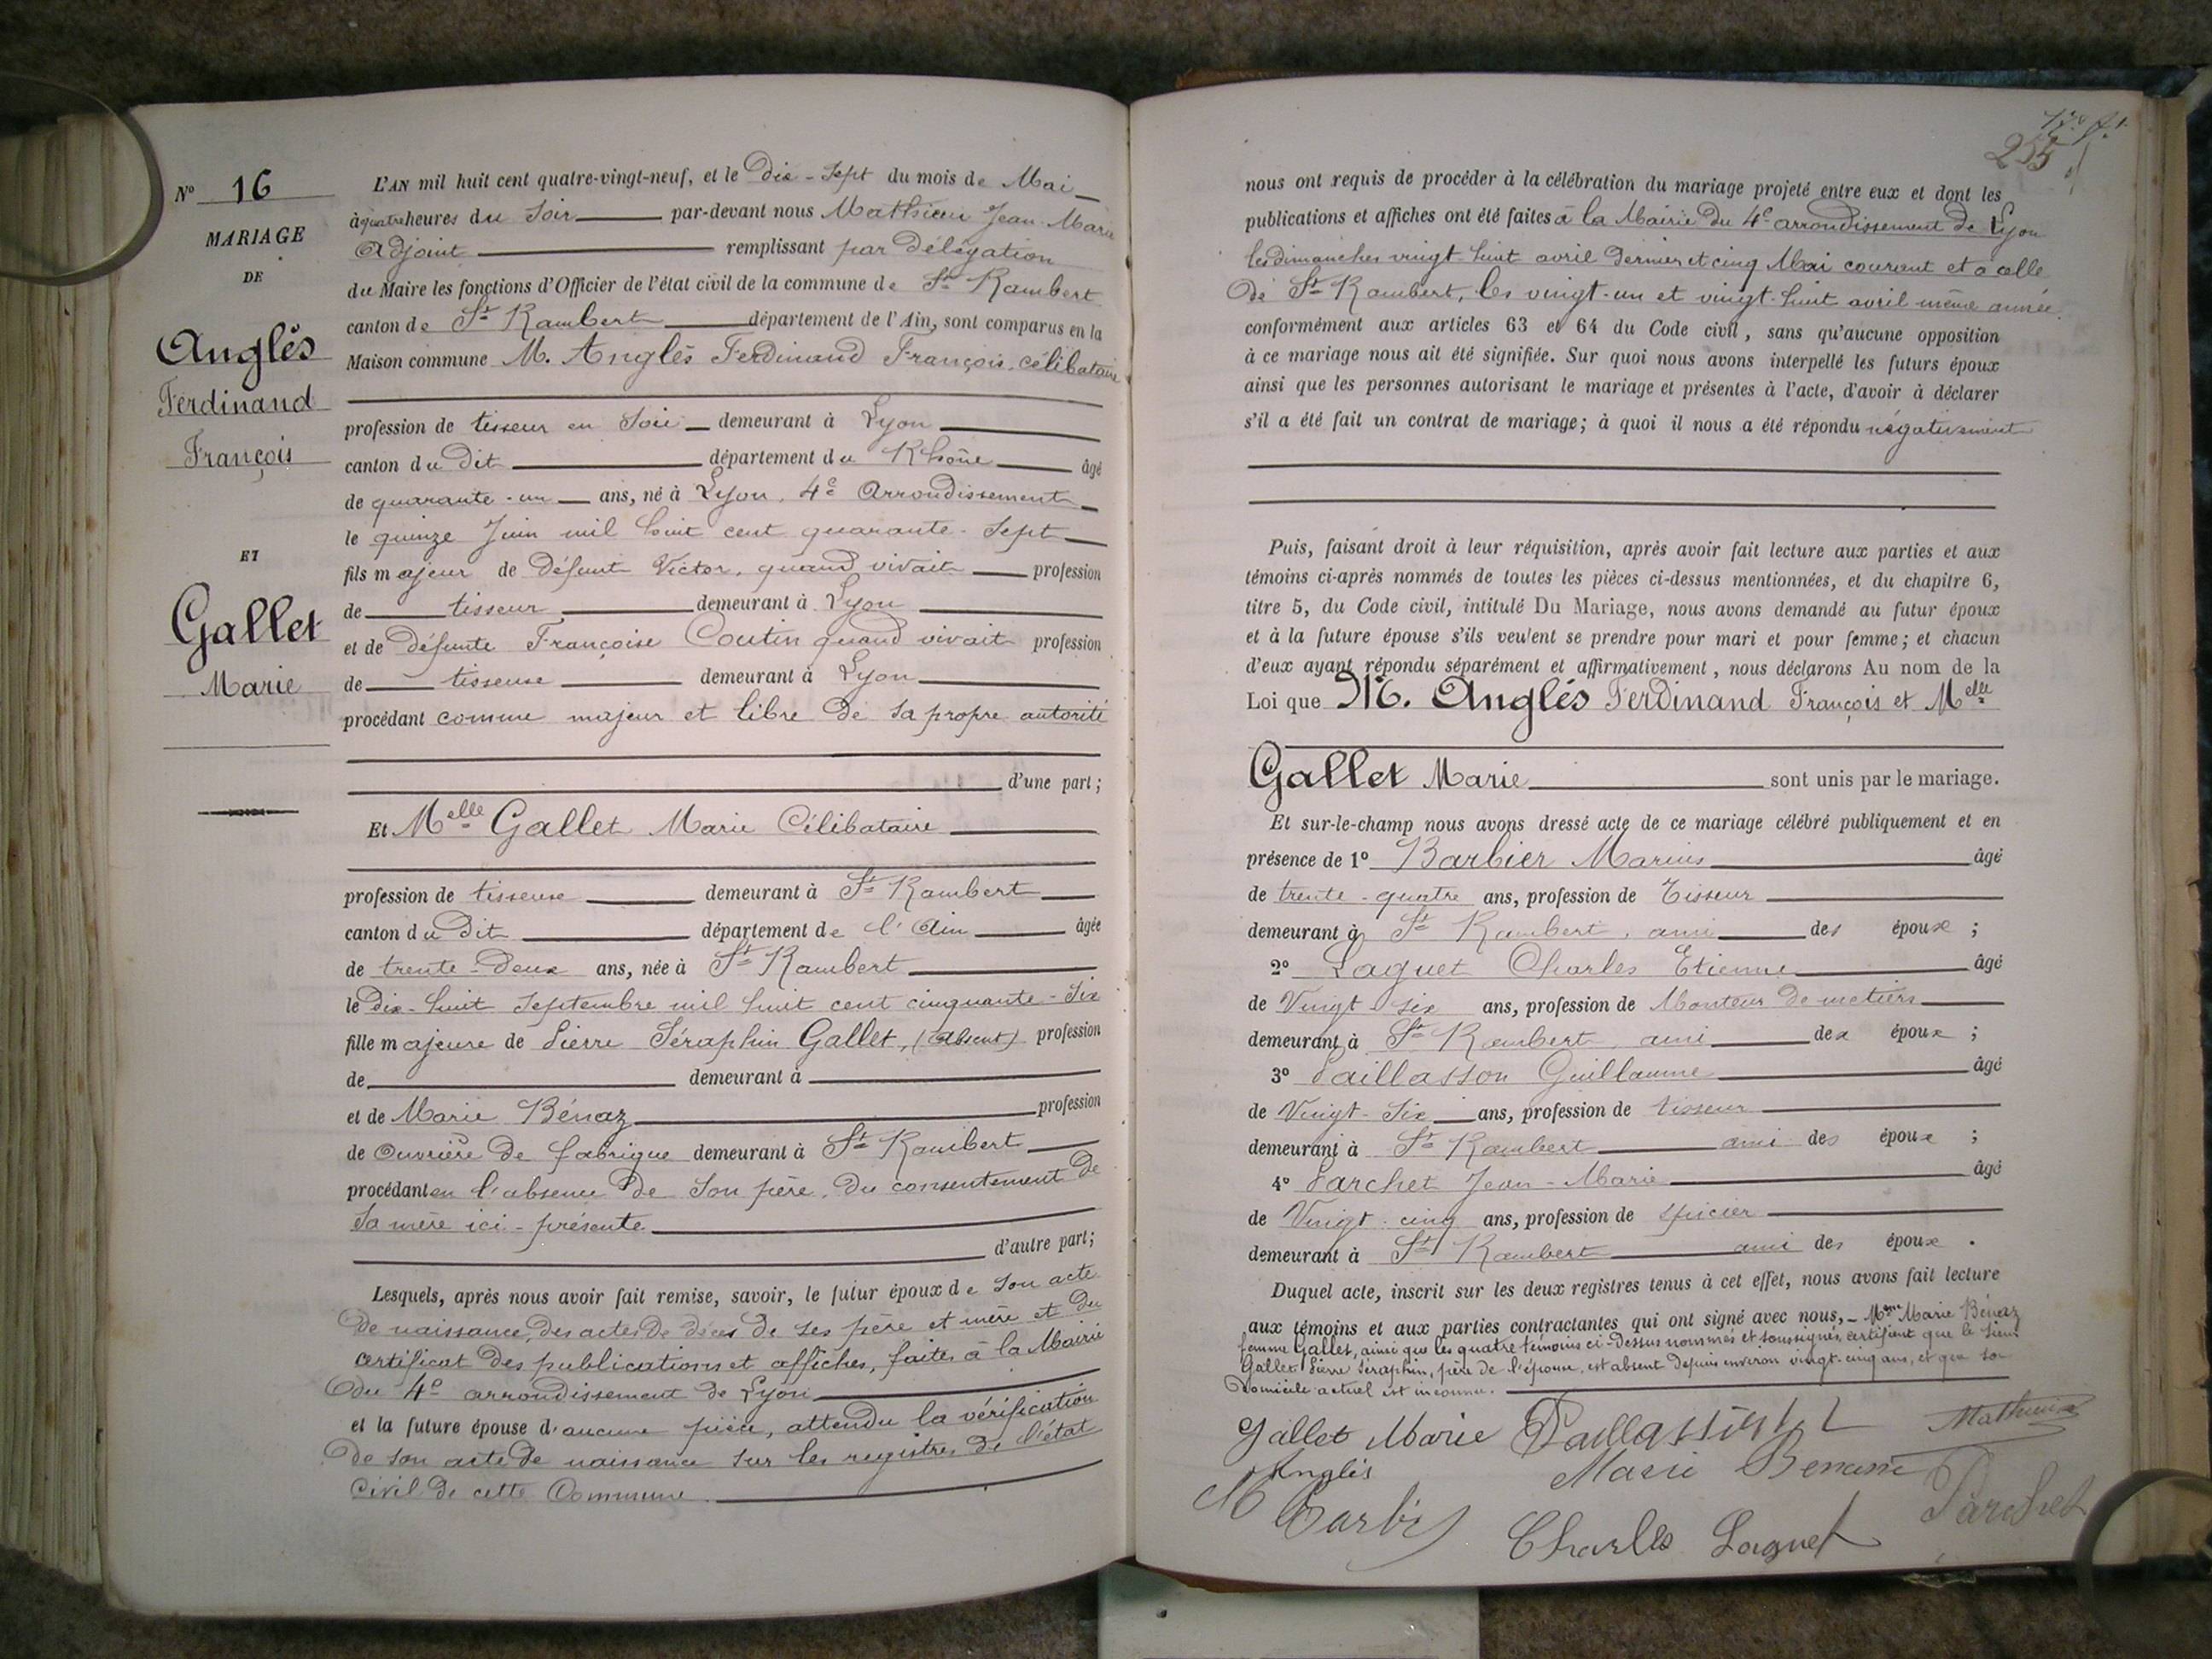 N° 16
MARIAGE
DE
Anglès
Ferdinand
François
ET
Gallet
Marie
L'AN mil huit cent quatre-vingt-neuf, et le dix-sept du mois de Mai
à quatre heures du soir par-devant nous Mathieu Jean-Marie
Adjoint remplissant par délégation
du Maire les fonctions d'Officier de l'état civil de la commune de St Rambert
canton de St Rambert département de l'Ain, sont comparus en la
Maison commune M. Anglès Ferdinand François, célibataire
profession de tisseur en soie demeurant à Lyon
canton du dit département du Rhône âgé
de quarante-un ans, né à Lyon, 4e Arrondissement
le quinze Juin mil huit cent quarante-sept
fils majeur de défunt Victor, quand vivait profession
de tisseur demeurant à Lyon
et de défunte Françoise Coutin quand vivait profession
de tisseuse demeurant à Lyon
procédant comme majeur et libre de sa propre autorité
d'une part;
Et Melle Gallet Marie Célibataire
profession de tisseuse demeurant à St Rambert
canton du dit département de l'Ain âgée
de trente-deux ans, née à St Rambert
le dix-huit septembre mil huit cent cinquante-six
fille majeure de Pierre Séraphin Gallet, (absent) profession
de demeurant à
et de Marie Bénaz profession
de Ouvrière de fabrique demeurant à St Rambert
procédant en l'absence de son père, du consentement de
sa mère ici-présente
d'autre part;
Lesquels, après nous avoir fait remise, savoir, le futur époux de son acte
de naissance, des actes de décès de ses père et mère et du
certificat des publications et affiches, faites à la Mairie
du 4e arrondissement de Lyon
et la future épouse d'aucune pièce, attendu la vérification
de son acte de naissance sur les registres de l'état
civil de cette Commune.
255
nous ont requis de procéder à la célébration du mariage projeté entre eux et dont les
publications et affiches ont été faites à la Mairie du 4e arrondissement de Lyon
les dimanches vingt-huit avril dernier et cinq Mai courant et à celle
de St Rambert, les vingt-un et vingt-huit avril même année.
conformément aux articles 63 et 64 du Code civil, sans qu'aucune opposition
à ce mariage nous ait été signifiée. Sur quoi nous avons interpellé les futurs époux
ainsi que les personnes autorisant le mariage et présentes à l'acte, d'avoir à déclarer
s'il a été fait un contrat de mariage; à quoi il nous a été répondu négativement
Puis, faisant droit à leur réquisition, après avoir fait lecture aux parties et aux
témoins ci-après nommés de toutes les pièces ci-dessus mentionnées, et du chapitre 6,
titre 5, du Code civil, intitulé Du Mariage, nous avons demandé au futur époux
et à la future épouse s'ils veulent se prendre pour mari et pour femme; et chacun
d'eux ayant répondu séparément et affirmativement, nous déclarons Au nom de la
Loi que M. Anglès Ferdinand François et Melle
Gallet Marie sont unis par le mariage.
Et sur-le-champ nous avons dressé acte de ce mariage célébré publiquement et en
présence de 1° Barbier Marius âgé
de trente-quatre ans, profession de Tisseur
demeurant à St Rambert, ami des époux;
2° Laguet Charles Etienne âgé
de Vingt six ans, profession de Monteur de metiers
demeurant à St Rambert, ami des époux;
3° Paillasson Guillaume âgé
de Vingt-six ans, profession de tisseur
demeurant à St Rambert ami des époux;
4° Parchet Jean-Marie âgé
de Vingt-cinq ans, profession de épicier
demeurant à St Rambert ami des époux.
Duquel acte, inscrit sur les deux registres tenus à cet effet, nous avons fait lecture
aux témoins et aux parties contractantes qui ont signé avec nous, Mme Marie Bénaz
femme Gallet, ainsi que les quatre témoins ci-dessus nommés et soussignés, certifient que le sieur
Gallet Pierre Séraphin, père de l'épouse, est absent depuis environ vingt-cinq ans, et que son
domicile actuel est inconnu.
Gallet Marie Paillasson Mathieu
Anglès Marie
M Barbier Parchet
Charles Laguet